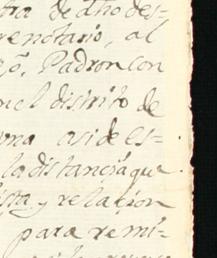 tra de dho des-
renctario, al
Padron con
el distrito de
una asi de es-
la distancia que
ista, y relacion
para remi-